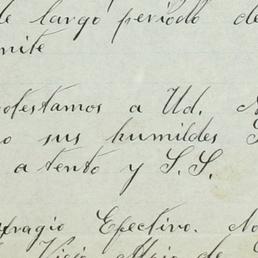 de largo período de
mite
otestamos a Ud. N
o sus humildes S
atento y S. S.
fragio Efectivo. No
Viejo Abajo de